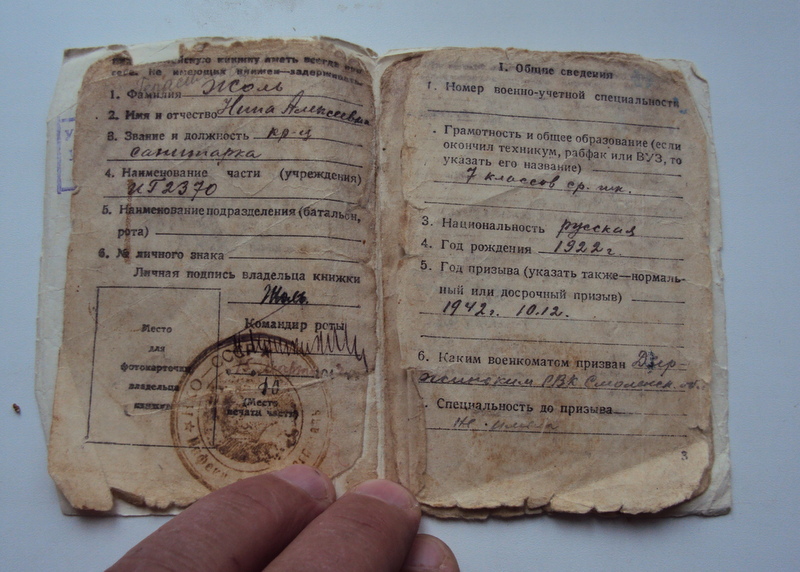 книжку иметь всегда при
себе. Не имеющих книжек—задерживать.
1. Фамилия Жоль
2. Имя и отчество Нина Алексеевна
3. Звание и должность кр-ц
санитарка
4. Наименование части (учреждения)
2370
5. Наименование подразделения (батальон,
рота)
6. № личного знака
Личная подпись владельца книжки
Жоль
Командир роты
Место
для
фотокарточки
владельца
книжки
(Место
печати части)
НКО СССР
I. Общие сведения
1. Номер военно-учетной специальности
. Грамотность и общее образование (если
окончил техникум, рабфак или ВУЗ, то
указать его название)
7 классов ср. шк.
3. Национальность русская
4. Год рождения 1922 г.
5. Год призыва (указать также—нормаль-
ный или досрочный призыв)
1942 г. 10.12.
6. Каким военкоматом призван Дзер-
жинским РВК Смоленск. о.
. Специальность до призыва
не имела
3